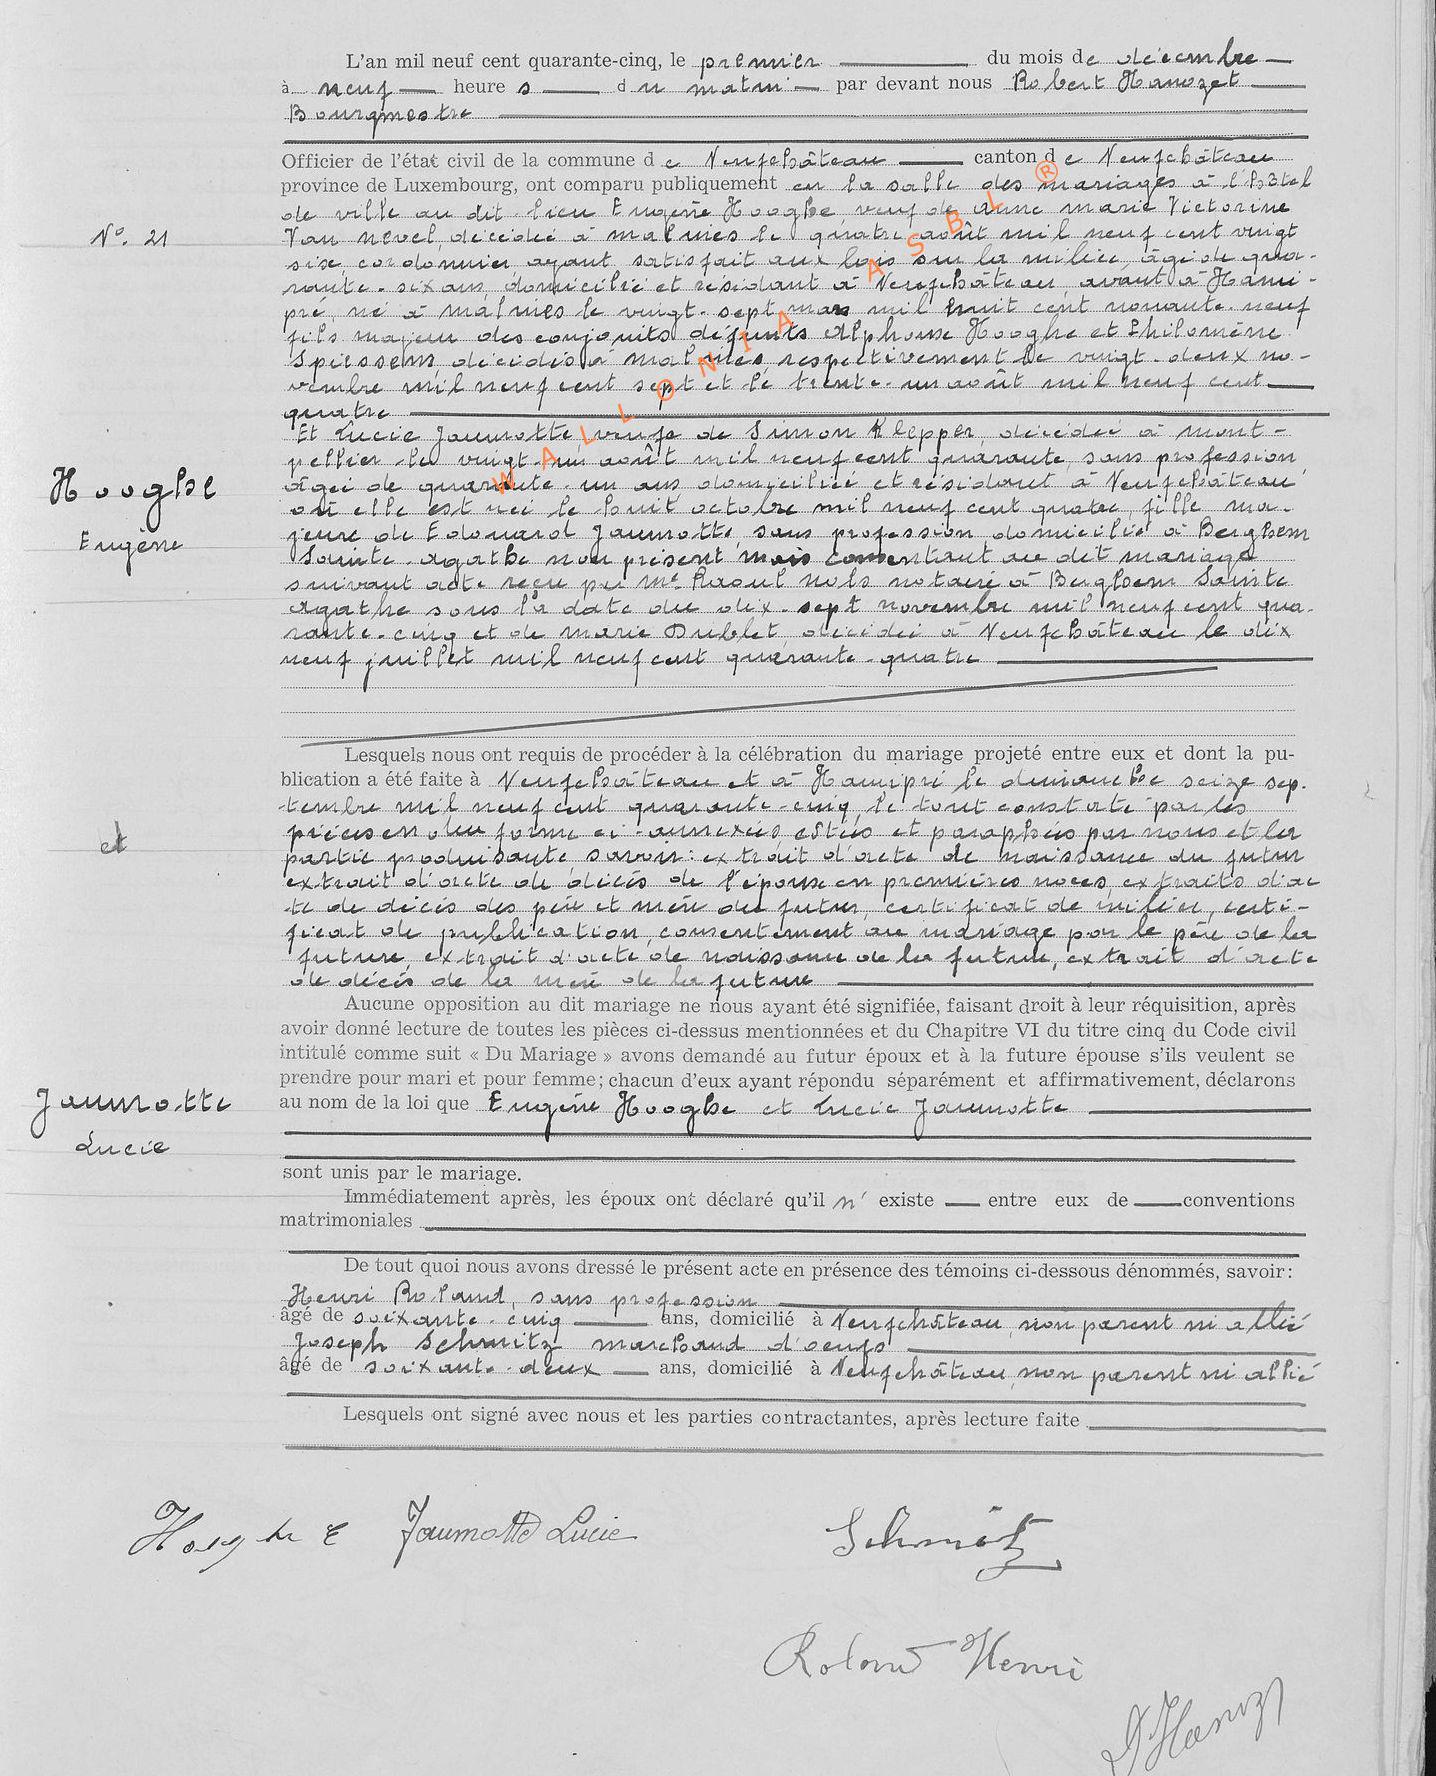 L'an mil neuf cent quarante-cinq, le premier du mois de décembre
à neuf heures du matin par devant nous Robert Hanozet
Bourgmestre
Officier de l'état civil de la commune de Neufchâteau canton de Neufchâteau
province de Luxembourg, ont comparu publiquement en la salle des mariages à l'hôtel
de ville au dit lieu Eugène Hooghe veuf de Anne Marie Victorine
N° 21
Van Nevel, décédée à Malines le quatre août mil neuf cent vingt
six, cordonnier ayant satisfait aux lois sur la milice, âgé de qua-
rante-six ans, domicilié et résidant à Neufchâteau, avant à Hami-
pré, né à Malines le vingt-sept mars mil huit cent nonante-neuf
fils majeur des conjoints défunts Alphonse Hooghe et Philomène
Spiessens, décédés à Malines, respectivement le vingt-deux no-
vembre mil neuf cent sept et le trente-un août mil neuf cent
quatre
Et Lucie Jaumotte, veuve de Simon Klepper, décédé à Mont-
pellier le vingt-un août mil neuf cent quarante, sans profession,
Hooghe
âgée de quarante-un ans, domiciliée et résidant à Neufchâteau
où elle est née le huit octobre mil neuf cent quatre, fille ma-
jeure de Edouard Jaumotte, sans profession domicilié à Berghem
Eugène
Sainte-Agathe non présent mais consentant au dit mariage
suivant acte reçu par Me Raoul Nols notaire à Berghem Sainte
Agathe sous la date du dix-sept novembre mil neuf cent qua-
rante-cinq et de Marie Dublet, décédée à Neufchâteau le dix
neuf juillet mil neuf cent quarante-quatre
Lesquels nous ont requis de procéder à la célébration du mariage projeté entre eux et dont la pu-
blication a été faite à Neufchâteau et à Hamipré le dimanche seize sep-
tembre mil neuf cent quarante-cinq, le tout constaté par les
pièces en due forme ci-annexées, cotées et paraphées par nous et la
et
partie produisante savoir: extrait d'acte de naissance du futur
extrait d'acte de décès de l'épouse en premières noces, extraits d'ac
te de décès des père et mère du futur, certificat de milice, certi-
ficat de publication, consentement au mariage par le père de la
future, extrait d'acte de naissance de la future, extrait d'acte
de décès de la mère de la future
Aucune opposition au dit mariage ne nous ayant été signifiée, faisant droit à leur réquisition, après
avoir donné lecture de toutes les pièces ci-dessus mentionnées et du Chapitre VI du titre cinq du Code civil
intitulé comme suit « Du Mariage » avons demandé au futur époux et à la future épouse s'ils veulent se
prendre pour mari et pour femme; chacun d'eux ayant répondu séparément et affirmativement, déclarons
Jaumotte
au nom de la loi que Eugène Hooghe et Lucie Jaumotte
Lucie
sont unis par le mariage.
Immédiatement après, les époux ont déclaré qu'il n'existe entre eux de conventions
matrimoniales
De tout quoi nous avons dressé le présent acte en présence des témoins ci-dessous dénommés, savoir:
Henri Roland, sans profession
âgé de soixante-cinq ans, domicilié à Neufchâteau, non parent ni allié
Joseph Schmitz marchand d'oeufs
âgé de soixante-deux ans, domicilié à Neufchâteau, non parent ni allié
Lesquels ont signé avec nous et les parties contractantes, après lecture faite
Hooghe E Jaumotte Lucie Schmitz
Roland Henri
WALLONIA ASBL ®